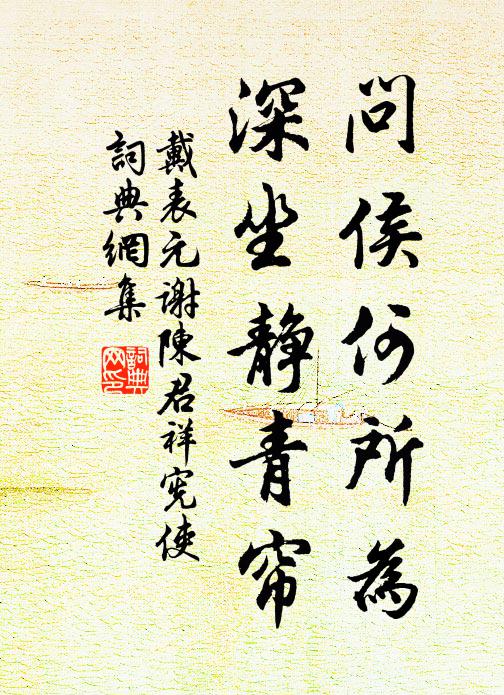 問侯何所為
深坐静青帘
戴表元謝陳君祥宪使
詞典網集
詞典网印